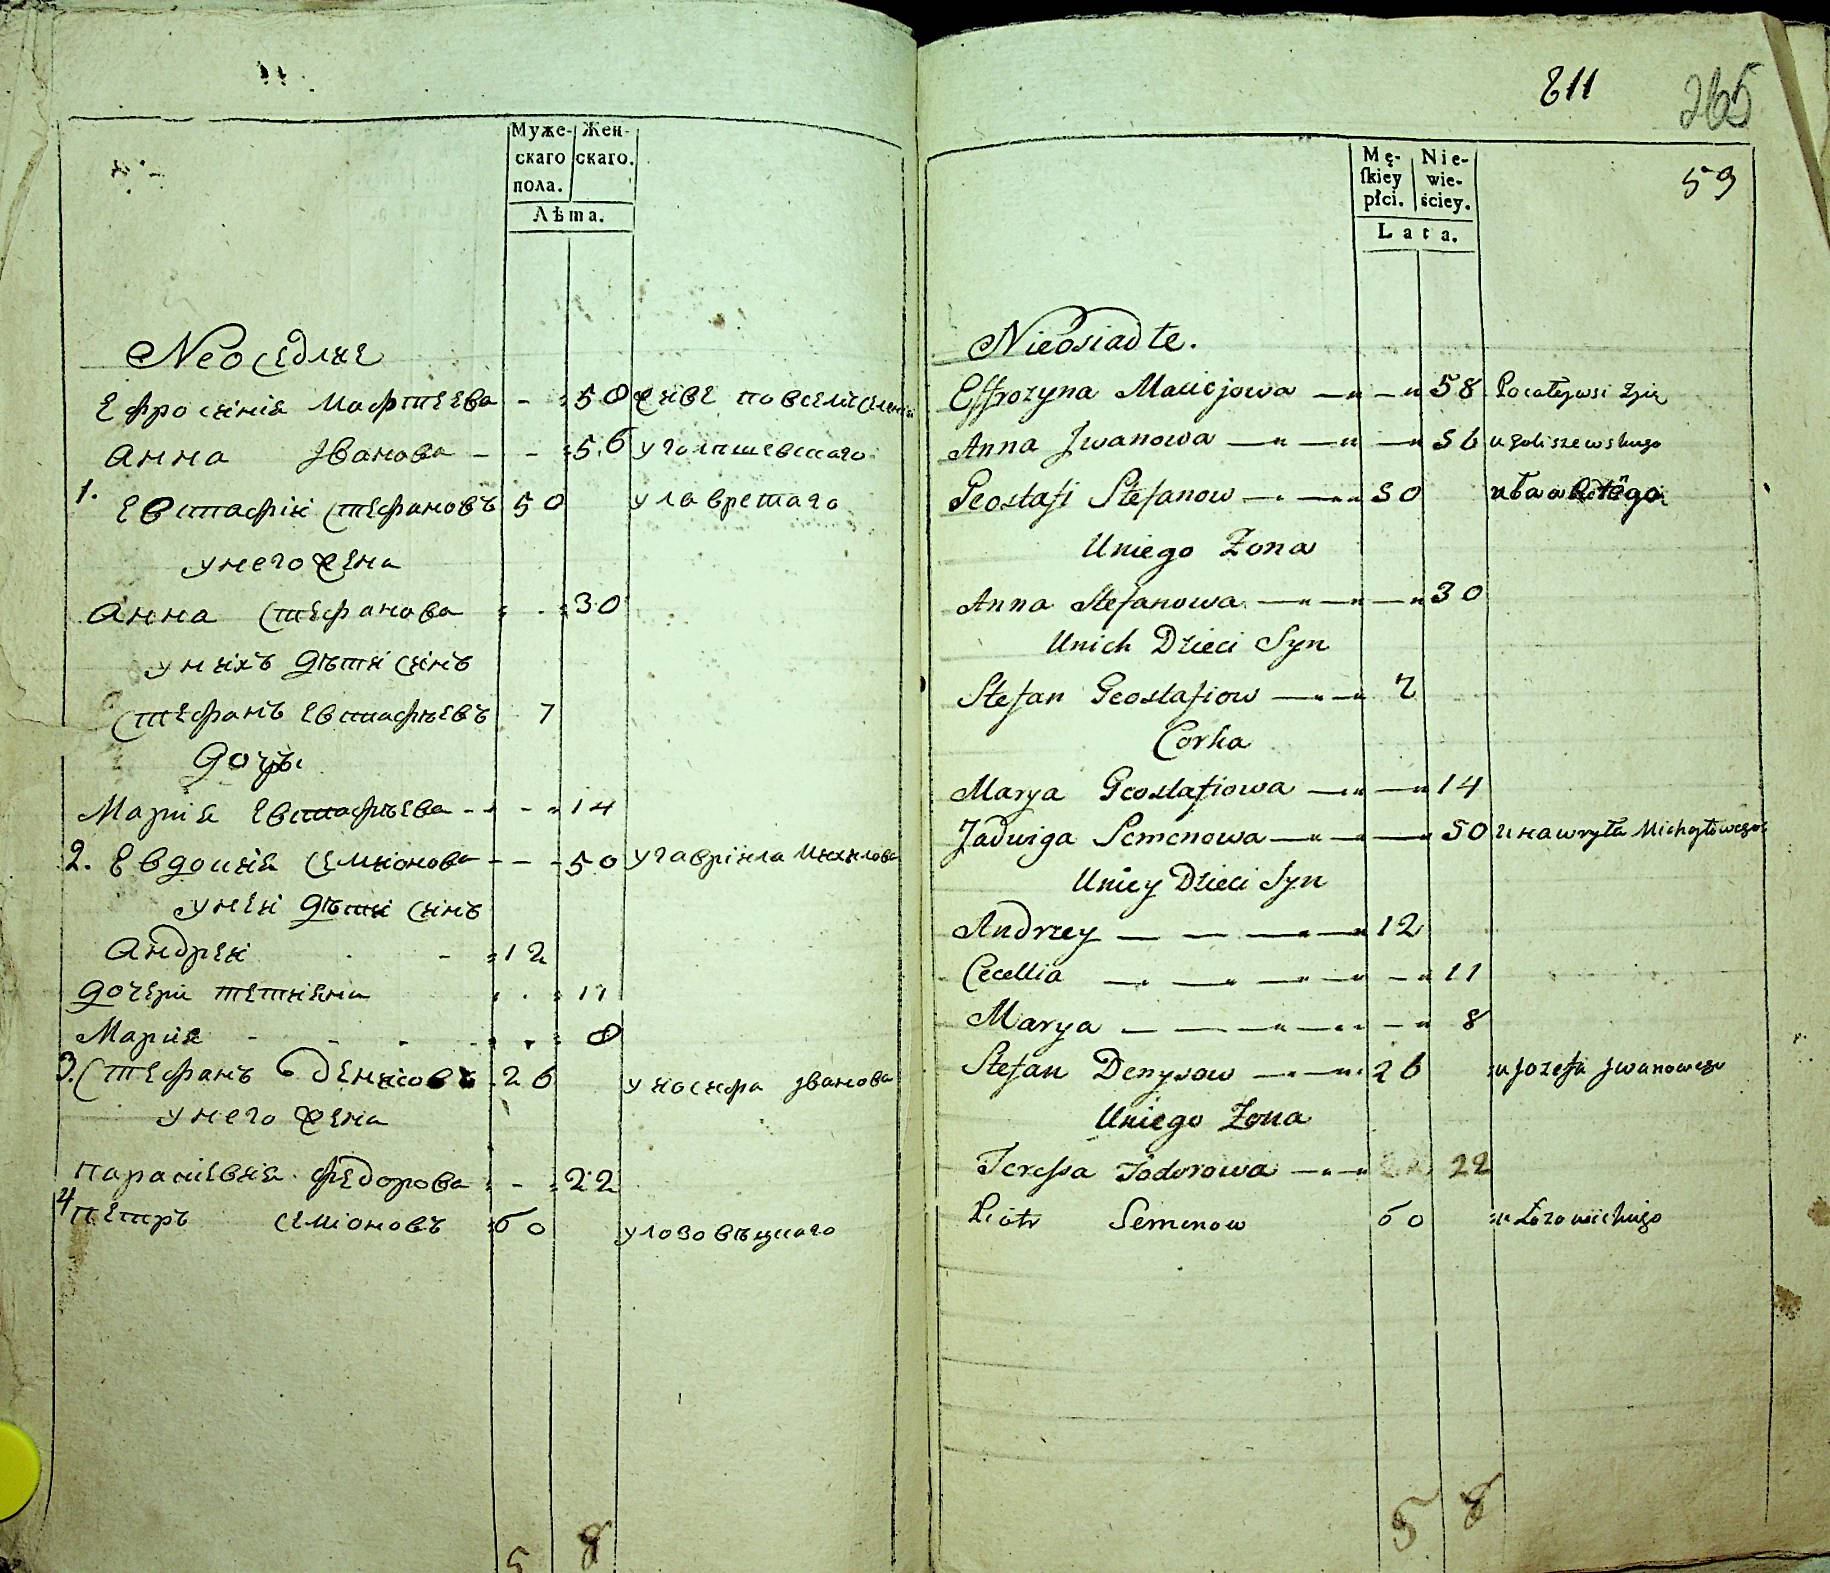 Муже-
скаго
пола.
Жен-
скаго.
Лѣта.
Неоседлые
Ефросиния Мафтеева - 58
Анна Иванова - - 56 у голишевскаго
1. Евстафий Стефановъ 50 у лавретаго
у него жена
Анна Стефанова - 30
у нихъ дѣти синъ
Стефанъ Евстафьевъ 7
дочь
Мария Евстафьева - - - 14
2. Евдокия Семионова - - - 50 у гаврила Михилова
у ней дѣти синъ
Андрей - 12
дочери тетияна 11
Мария - - - 8
3. Стефанъ денисовъ 26 у иосифа Иванова
у него жена
параскевия федорова - 22
4 петръ семионовъ 60 у лозовѣцкаго
5 8
811
265
59
Mę-
skiey
płci.
Nie-
wie-
ściey.
Lata.
Nieosiadłe.
Effrozyna Maciejowa 58
Anna Jwanowa 56 u Goliszewskiego
Geostafi Stefanow 50
Uniego Żona
Anna Stefanowa 30
Unich Dzieci Syn
Stefan Geostafiow 7
Corka
Marya Geostafiowa 14
Jadwiga Semenowa 50 u hawryła Michayłowego
Uniey Dzieci Syn
Andrzey 12
Cecellia 11
Marya 8
Stefan Denysow 26 u Jozefa Jwanowego
Uniego Żona
Teressa Fodorowa 22
Piotr Semenow 60 u Łozowickiego
5 8